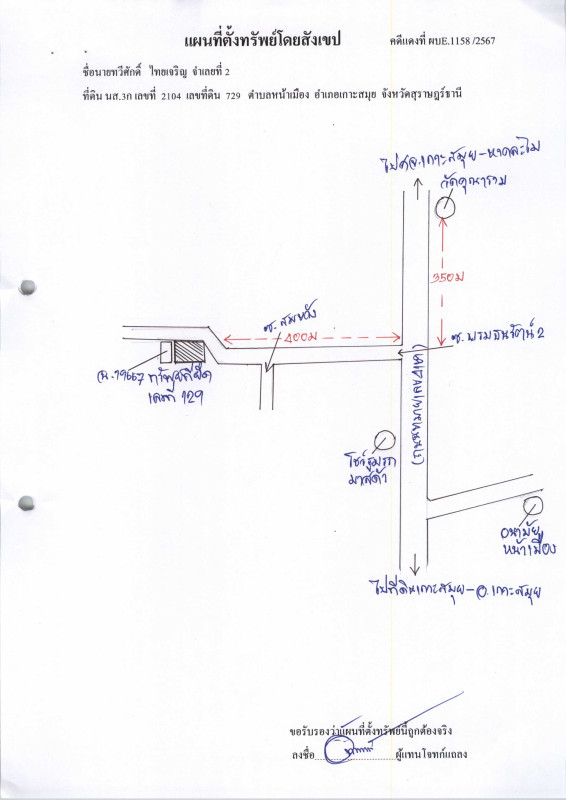 แผนที่ตั้งทรัพย์โดยสังเขป
คดีแดงที่ ผบE.1158 /2567
ชื่อนายทวีศักดิ์ ไทยเจริญ จำเลยที่ 2
ที่ดิน นส.3ก เลขที่ 2104 เลขที่ดิน 729 ตำบลหน้าเมือง อำเภอเกาะสมุย จังหวัดสุราษฎร์ธานี
ไปศจ.เกาะสมุย-หาดละไม
วัดคุณาราม
350ม
ซ. สมหวัง
400ม
ซ. พรมธนรัตน์ 2
น.79667 ทรัพย์ที่ยึด
เลขที่ 129
โชว์รูมรถ
มาสด้า
อนามัย
หน้าเมือง
ไปที่ดินเกาะสมุย-อ.เกาะสมุย
ขอรับรองว่าแผนที่ตั้งทรัพย์นี้ถูกต้องจริง
ลงชื่อ ผู้แทนโจทก์แถลง